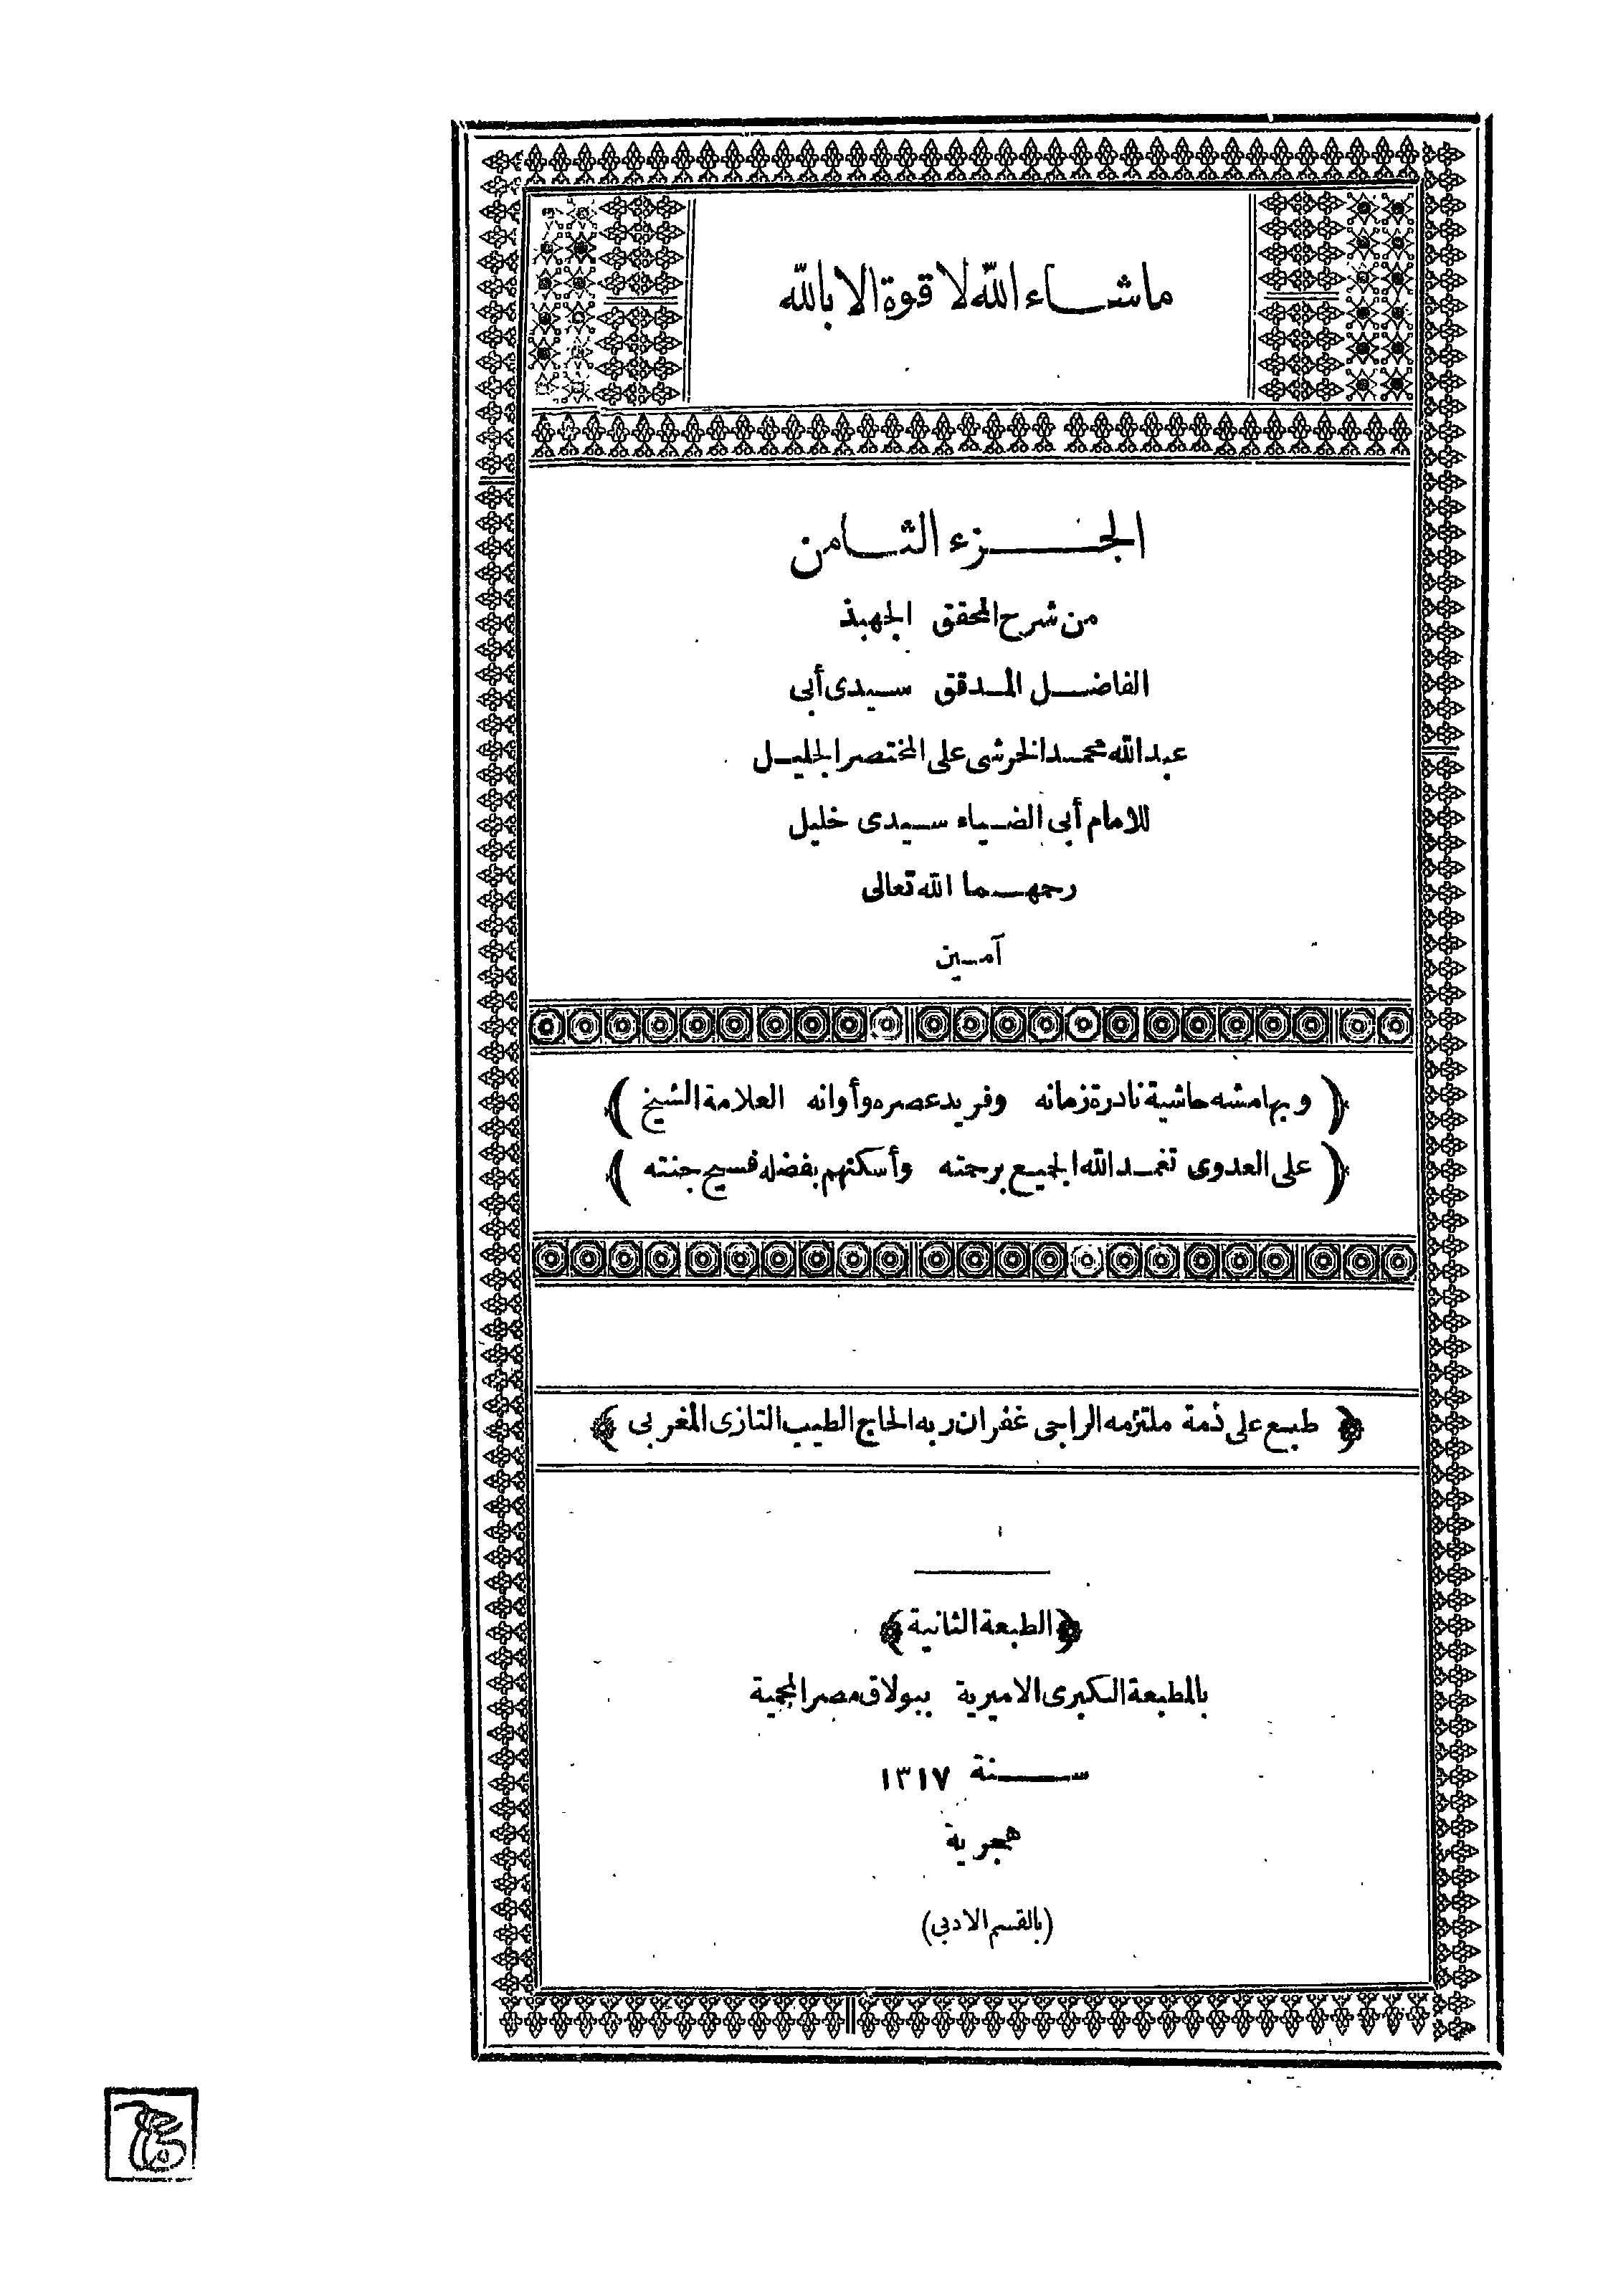 ماشاء الله لا قوة الا بالله
الجزء الثامن
من شرح المحقق الجهبذ
الفاضل المدقق سيدى أبى
عبد الله محمد الخرشى على المختصر الجليل
للامام أبى الضياء سيدى خليل
رحمهما الله تعالى
آمين
(وبهامشه حاشية نادرة زمانه وفريد عصره وأوانه العلامة الشيخ)
(على العدوى تغمد الله الجميع برحمته وأسكنهم بفضله فسيح جنته)
﴿طبع على ذمة ملتزمه الراجى غفران ربه الحاج الطيب التازى المغربى﴾
﴿الطبعة الثانية﴾
بالمطبعة الكبرى الاميرية ببولاق مصر المحمية
سنة ١٣١٧
هجرية
(بالقسم الادبى)